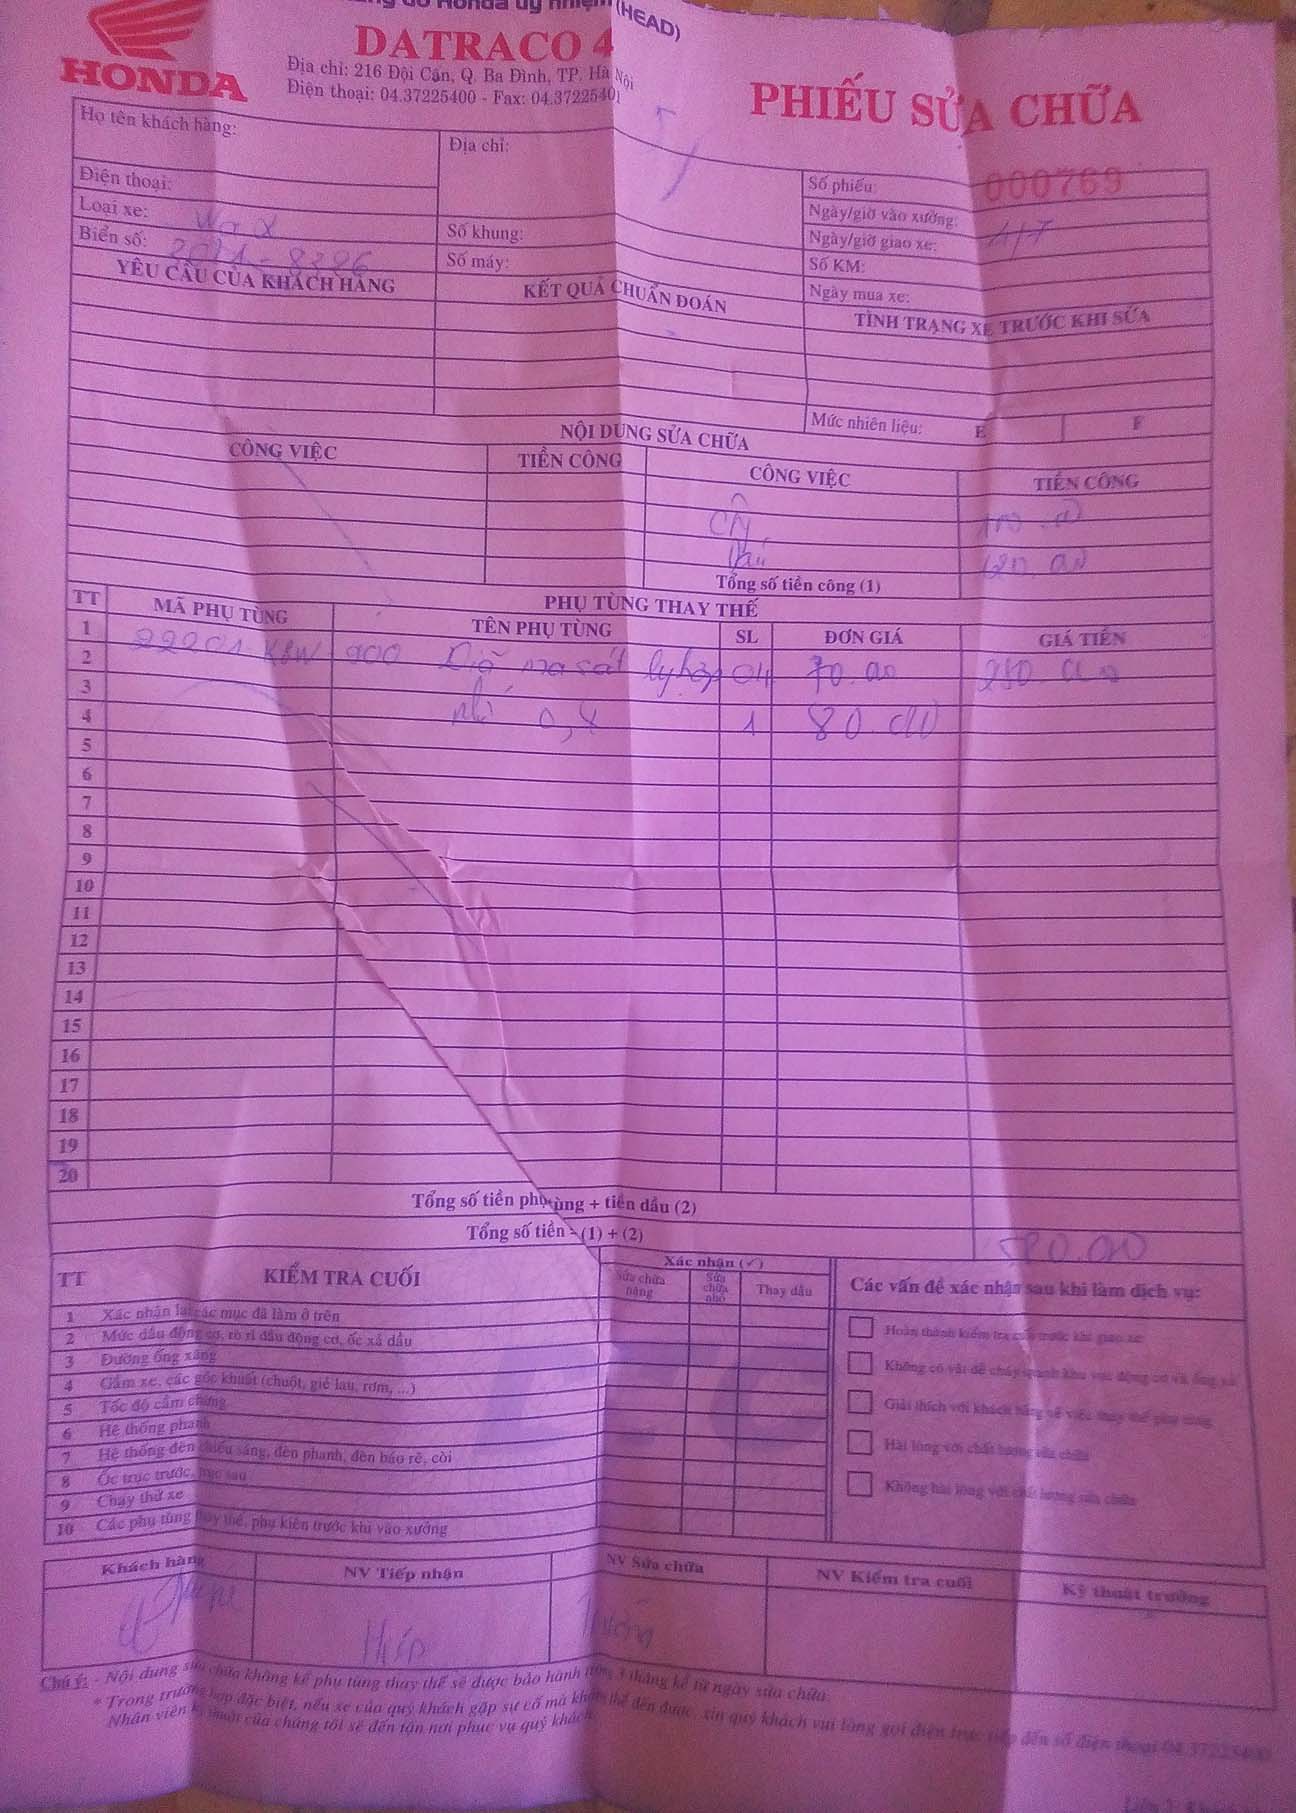 Honda ủy nhiệm (HEAD)
HONDA
DATRACO 4
Địa chỉ: 216 Đội Cấn, Q. Ba Đình, TP. Hà Nội
Điện thoại: 04.37225400 - Fax: 04.37225401
PHIẾU SỬA CHỮA
Họ tên khách hàng:
Địa chỉ:
Điện thoại:
Loại xe:
Biển số:
Số khung:
Số máy:
Số phiếu: 000769
Ngày/giờ vào xưởng: 4/7
Ngày/giờ giao xe:
Số KM:
Ngày mua xe:
YÊU CẦU CỦA KHÁCH HÀNG KẾT QUẢ CHUẨN ĐOÁN TÌNH TRẠNG XE TRƯỚC KHI SỬA
Mức nhiên liệu: E F
NỘI DUNG SỬA CHỮA
CÔNG VIỆC TIỀN CÔNG CÔNG VIỆC TIỀN CÔNG
Tổng số tiền công (1)
PHỤ TÙNG THAY THẾ
TT MÃ PHỤ TÙNG TÊN PHỤ TÙNG SL ĐƠN GIÁ GIÁ TIỀN
1 22201 KBW 900 Đĩa ma sát ly hợp 04 70.00
2
3 0,8 1 80.00
4
5
6
7
8
9
10
11
12
13
14
15
16
17
18
19
20
Tổng số tiền phụ tùng + tiền dầu (2)
Tổng số tiền = (1) + (2)
TT KIỂM TRA CUỐI
Xác nhận (✓)
Sửa chữa nặng
Sửa chữa nhỏ
Thay dầu
1 Xác nhận lại các mục đã làm ở trên
2 Mức dầu động cơ, rò rỉ dầu động cơ, ốc xả dầu
3 Đường ống xăng
4 Gầm xe, các góc khuất (chuột, giẻ lau, rơm, ...)
5 Tốc độ cầm chừng
6 Hệ thống phanh
7 Hệ thống đèn chiếu sáng, đèn phanh, đèn báo rẽ, còi
8 Ốc trục trước, trục sau
9 Chạy thử xe
10 Các phụ tùng thay thế, phụ kiện trước khi vào xưởng
Các vấn đề xác nhận sau khi làm dịch vụ:
Hoàn thành kiểm tra cuối trước khi giao xe
Không có vật dễ cháy quanh khu vực động cơ và ống xả
Giải thích với khách hàng về việc thay thế phụ tùng
Hài lòng với chất lượng sửa chữa
Không hài lòng với chất lượng sửa chữa
Khách hàng NV Tiếp nhận NV Sửa chữa NV Kiểm tra cuối Kỹ thuật trưởng
Hiếp
Chú ý: - Nội dung sửa chữa không kể phụ tùng thay thế sẽ được bảo hành trong 3 tháng kể từ ngày sửa chữa.
* Trong trường hợp đặc biệt, nếu xe của quý khách gặp sự cố mà không thể đến được, xin quý khách vui lòng gọi điện trực tiếp đến số điện thoại 04.37225400
Nhân viên kỹ thuật của chúng tôi sẽ đến tận nơi phục vụ quý khách.